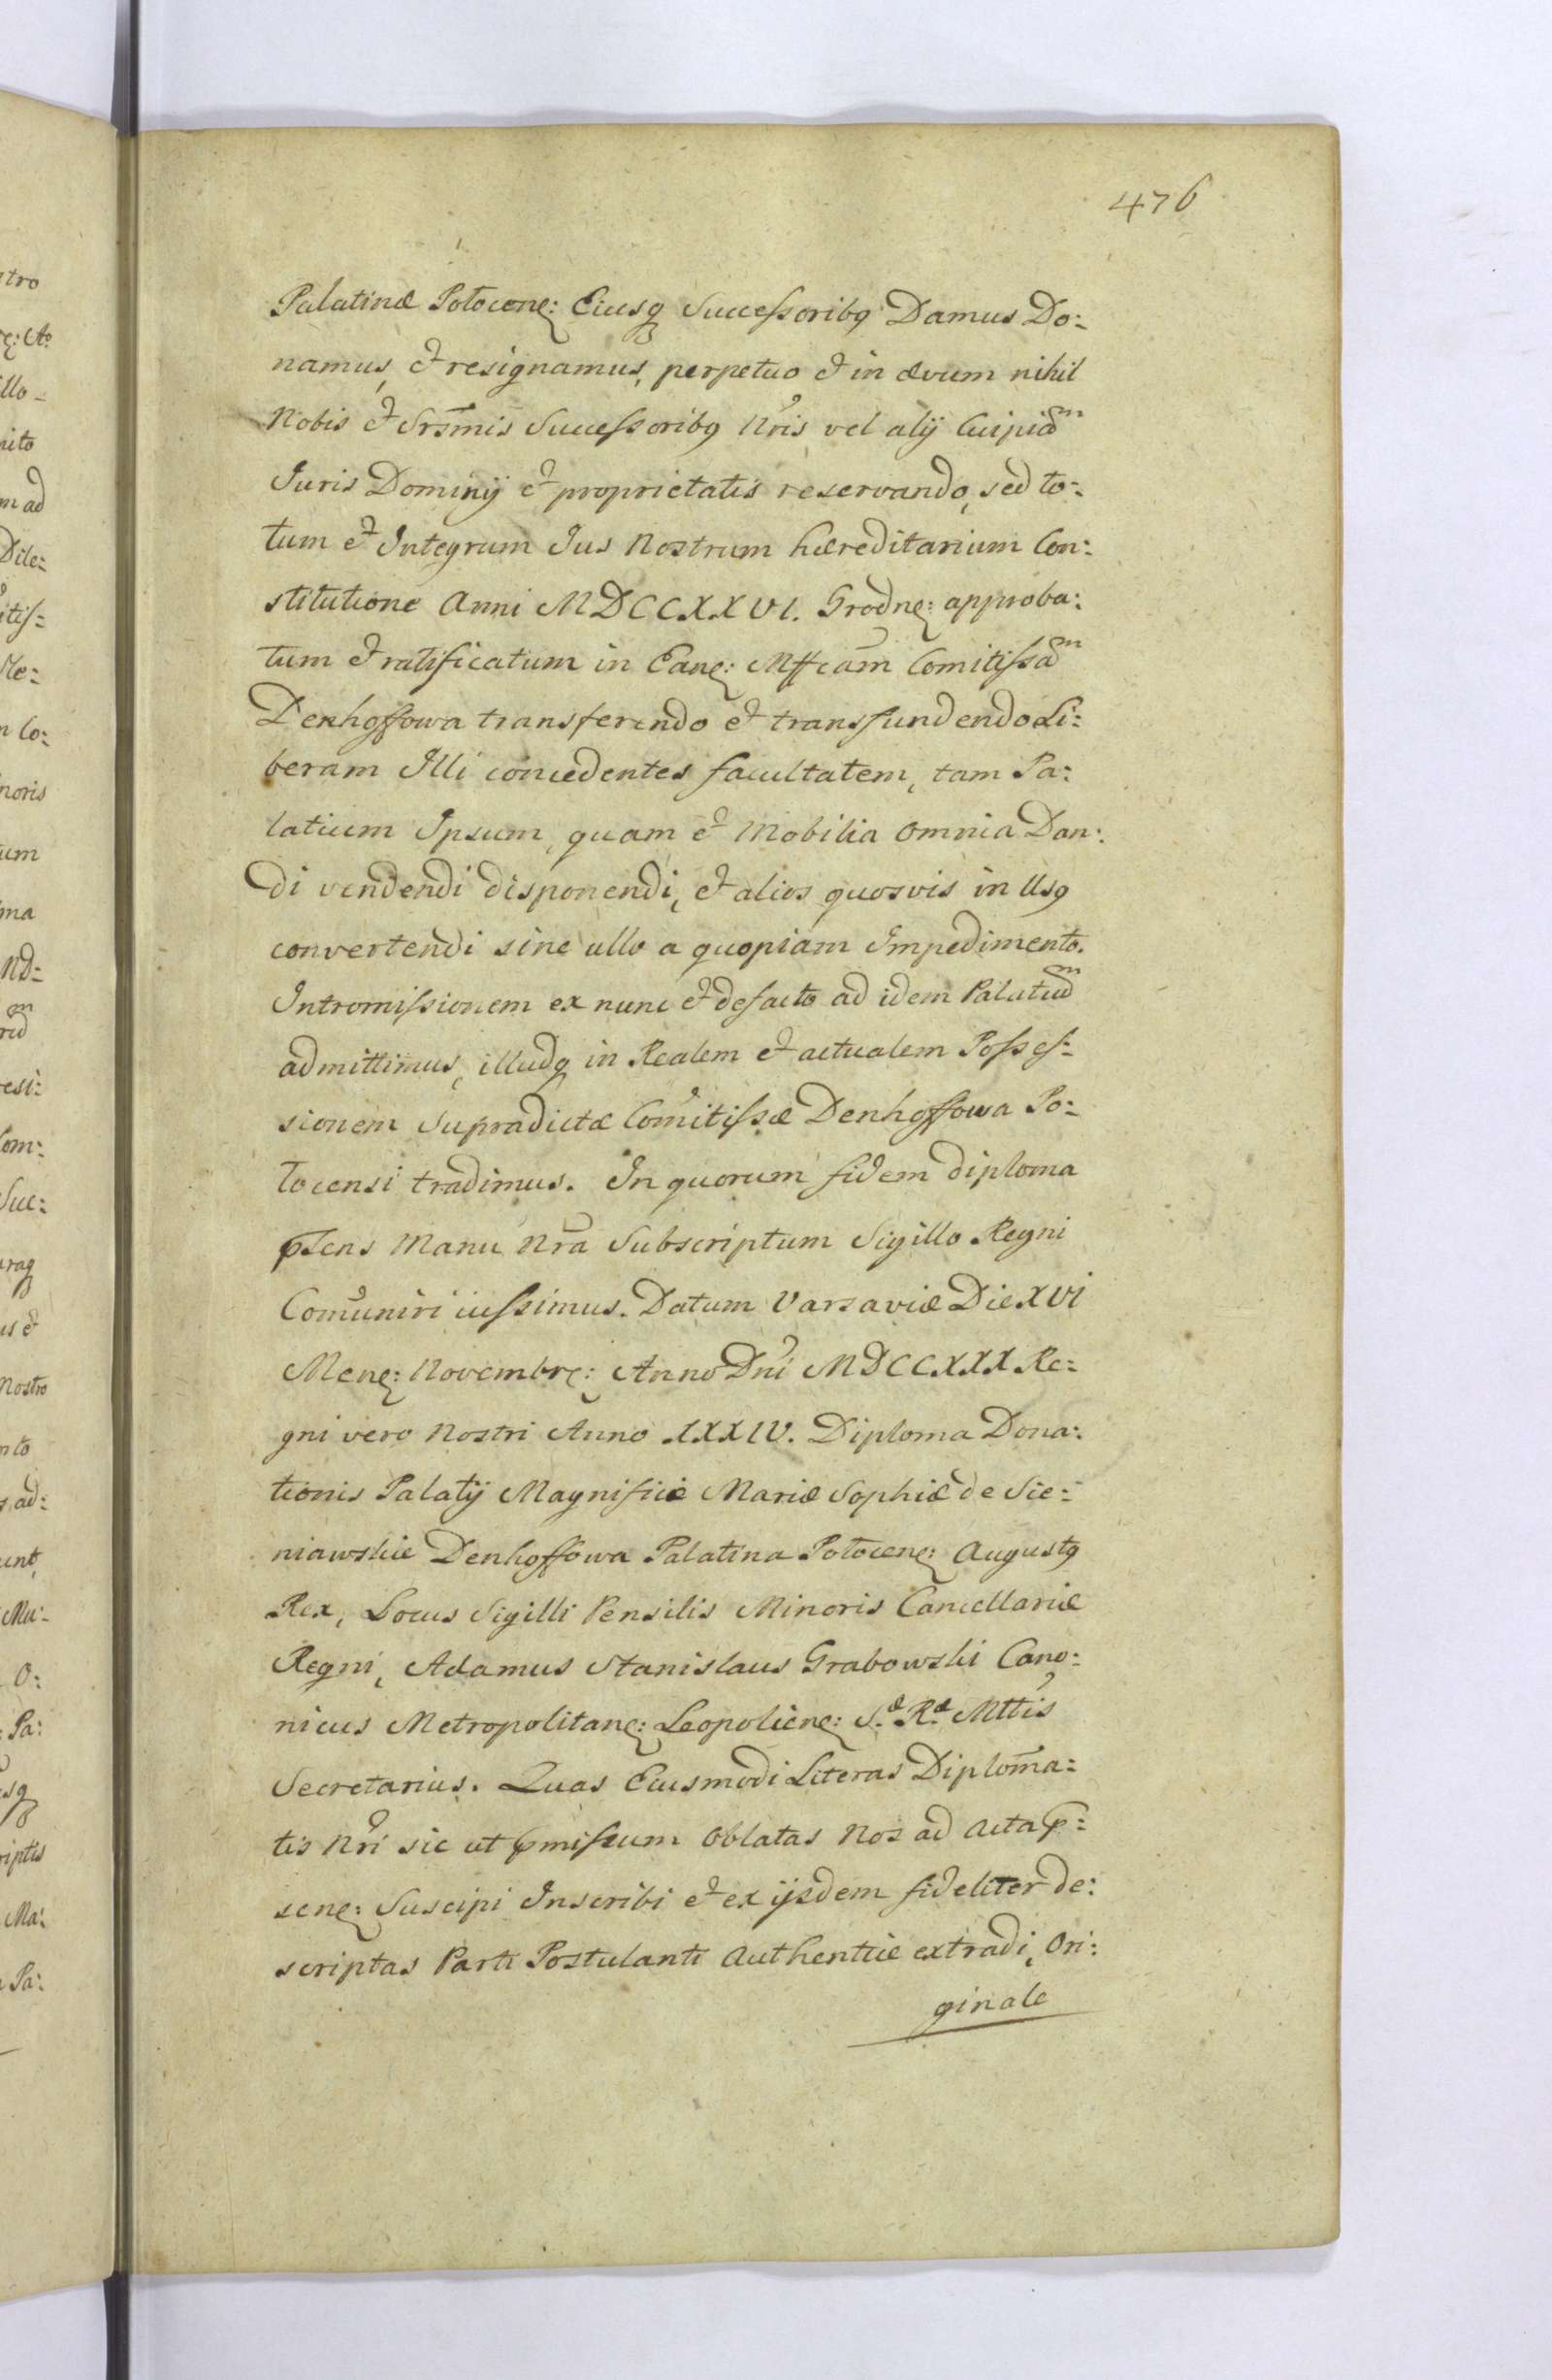 476
Palatinæ Potocenę: Eiusq Successoribq Damus Do:
namus, et resignamus, perpetuo et in ævum nihil
Nobis et Srsmis Successoribq Nris vel alÿ Cuipiam
Juris Dominÿ et proprietatis reservando, sed to:
tum et Integrum Jus Nostrum hæreditarium Con:
stitutione Anni MDCCXXVI. Grodnę: approba:
tum et ratificatum in Eanę: Mffcam Comitissam
Denhoffowa transferendo et transfundendo Li:
beram Illi concedentes facultatem, tam Pa:
latium Ipsum, quam et Mobilia omnia Dan:
di vendendi disponendi, et alios quosvis in Usq
convertendi sine ullo a quopiam Impedimento.
Intromissionem ex nunc et defacto ad idem Palatium
admittimus, illudq in Realem et actualem Posses:
sionem Supradictæ Comitissæ Denhoffowa Po:
tocensi tradimus. In quorum fidem diploma
pñens Manu Nra Subscriptum Sigillo Regni
Comuniri iussimus. Datum Varsaviæ Die XVI
Menę: Novembrę: Anno Dni MDCCXXX Re:
gni vero Nostri Anno XXXIV. Diploma Dona:
tionis Palatÿ Magnificæ Mariæ Sophiæ de Sie:
niawskie Denhoffowa Palatina Potocenę: Augustq
Rex, Locus Sigilli Pensilis Minoris Cancellariæ
Regni, Adamus Stanislaus Grabowski Cano:
nicus Metropolitanę: Leopolienę: S.æ R.æ Mttis
Secretarius. Quas Eiusmodi Literas Diploma:
tis Nri sic ut pmissum Oblatas Nos ad Acta p:
senę: Suscipi Inscribi et ex ÿsdem fideliter de:
scriptas Parti Postulanti Authenticæ extradi, Ori:
ginale